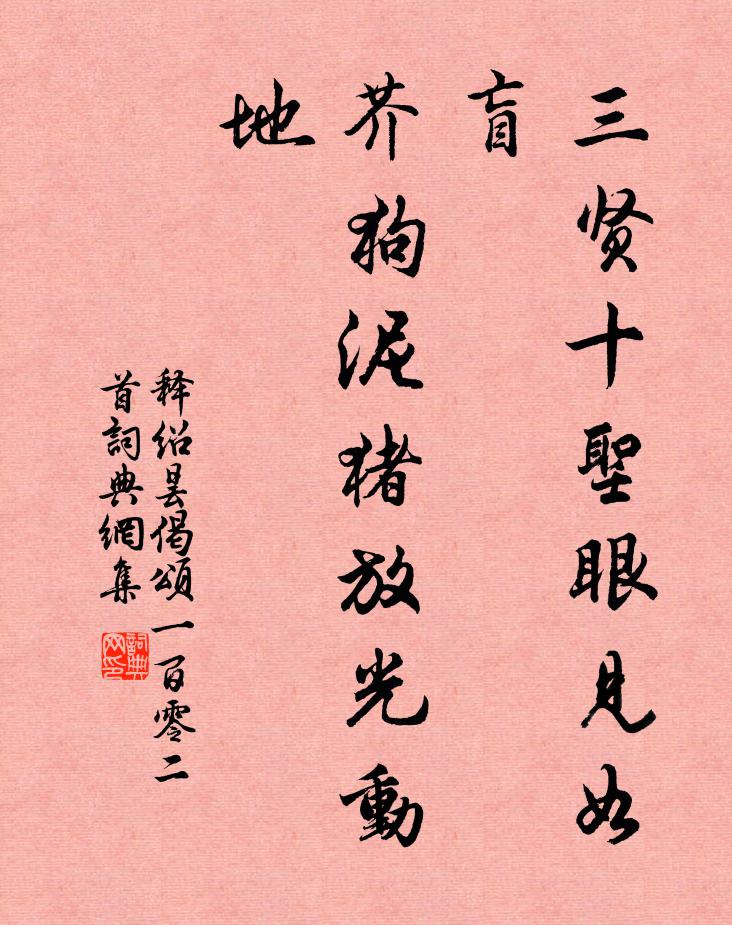 三贤十聖眼見如
盲
芥狗泥猪放光動
地
释绍昙偈頌一百零二
首詞典網集
詞典
网印